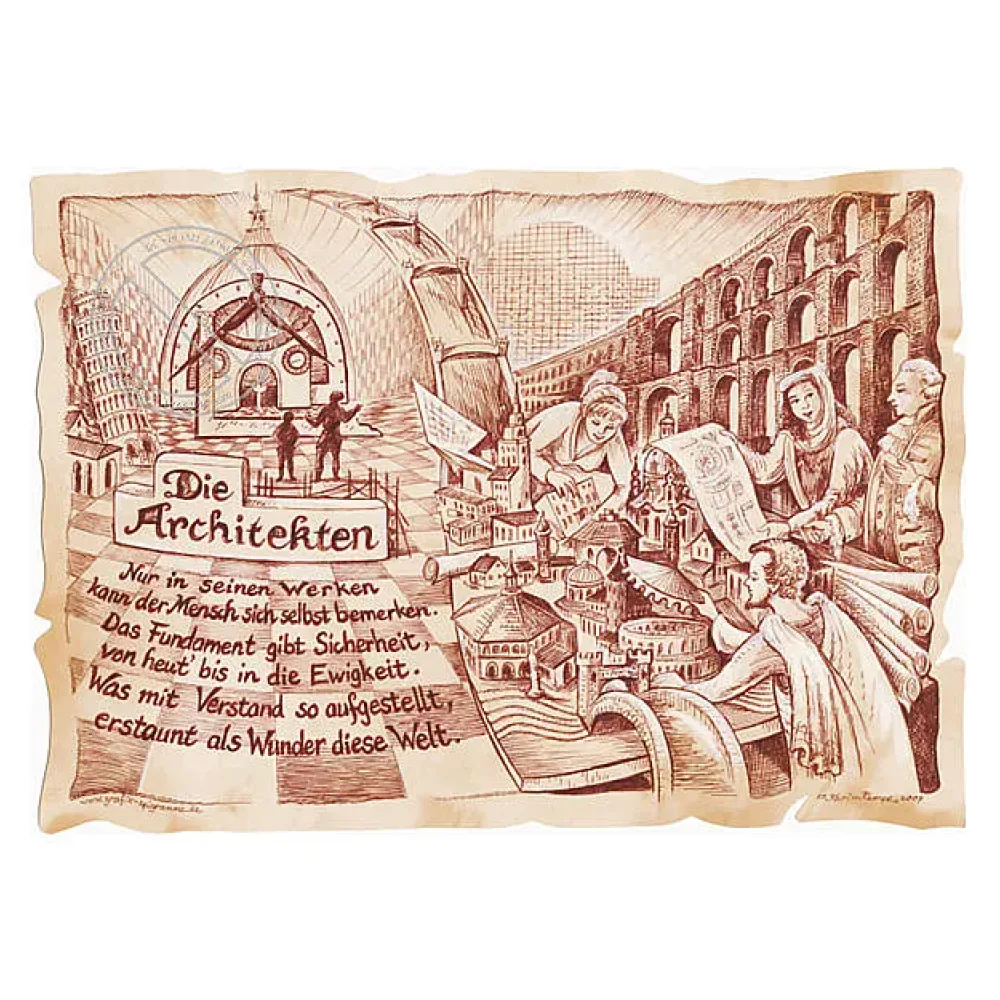 Die
Architekten
Nur in seinen Werken
kann der Mensch sich selbst bemerken.
Das Fundament gibt Sicherheit,
von heut' bis in die Ewigkeit.
Was mit Verstand so aufgestellt,
erstaunt als Wunder diese Welt.
2007